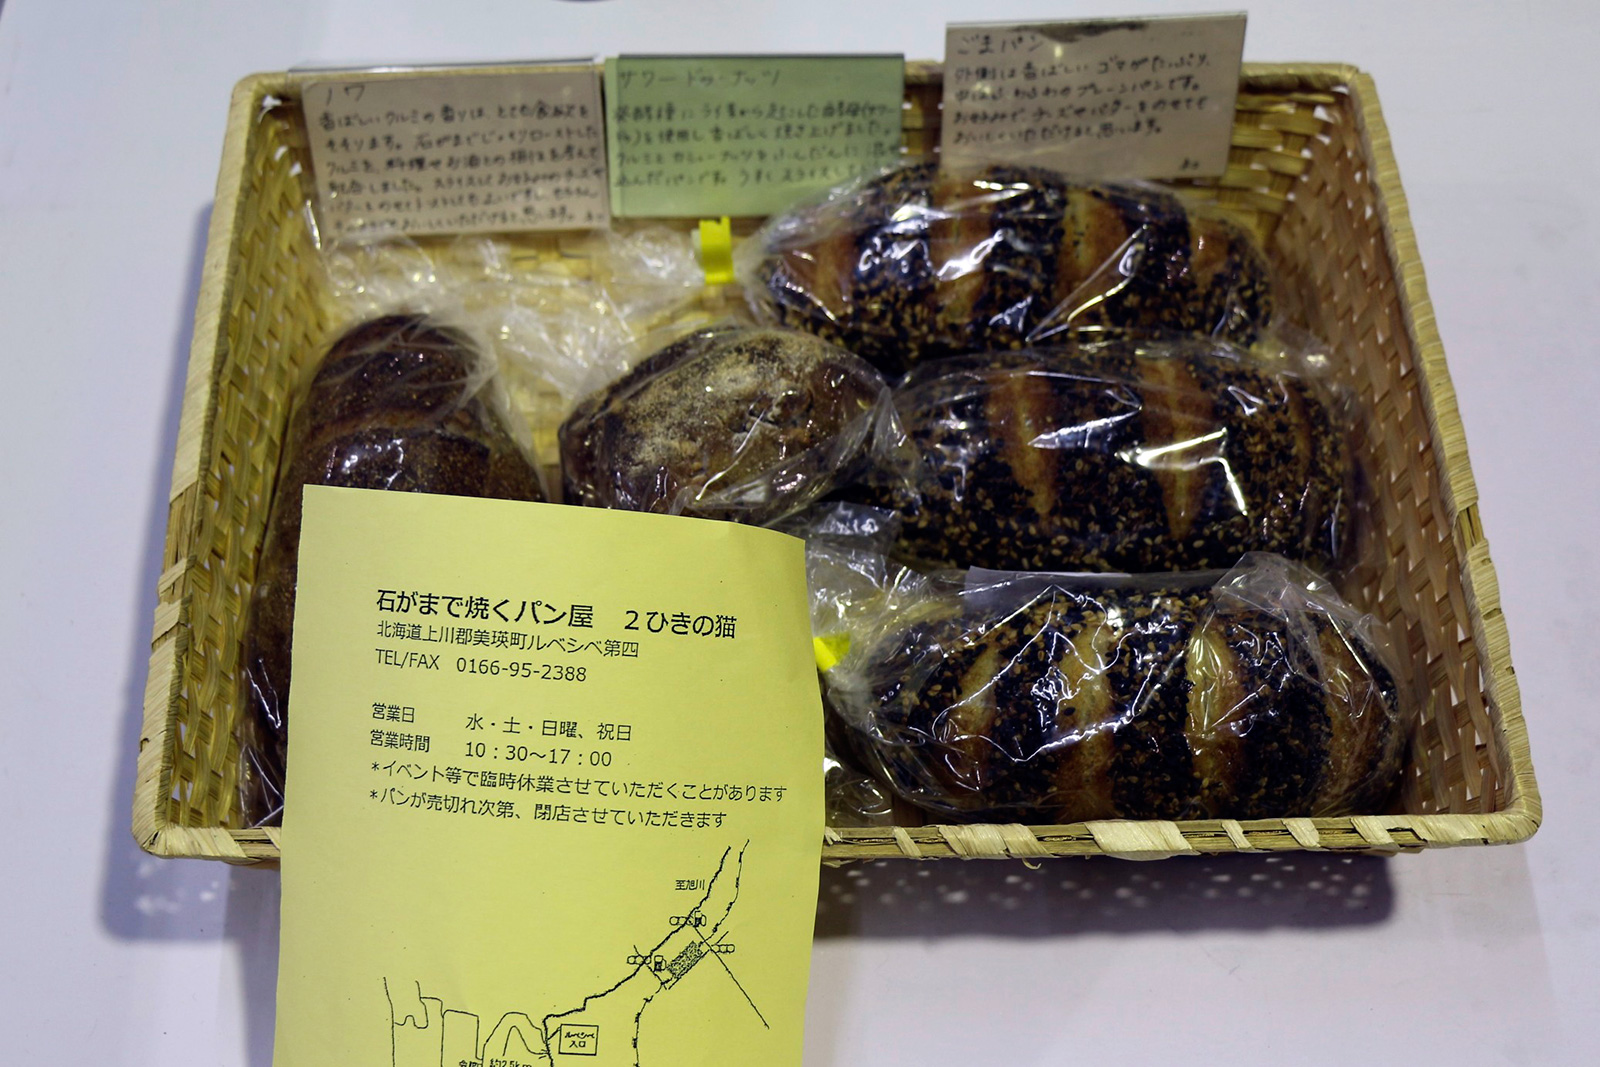 ノワ
香ばしいクルミの香りは、とても食欲を
そそります。石がまでじっくりローストした
クルミを、料理やお酒との相性を考えて
配合しました。スライスしてお好みのチーズや
サワードゥ・ナッツ
発酵種にライ麦から起こした酵母(サワー
種)を使用し香ばしく焼き上げました。
クルミとカシューナッツをふんだんに混ぜ
込んだパンです。うすくスライスして
ごまパン
外側は香ばしいゴマがたっぷり、
中はふわふわのプレーンパンです。
お好みで、チーズやバターをのせても
おいしいいただけると思います。
石がまで焼くパン屋　２ひきの猫
北海道上川郡美瑛町ルベシベ第四
TEL/FAX　0166-95-2388
営業日　水・土・日曜、祝日
営業時間　10：30～17：00
*イベント等で臨時休業させていただくことがあります
*パンが売切れ次第、閉店させていただきます
至旭川
ルベシベ
入口
約2.5km